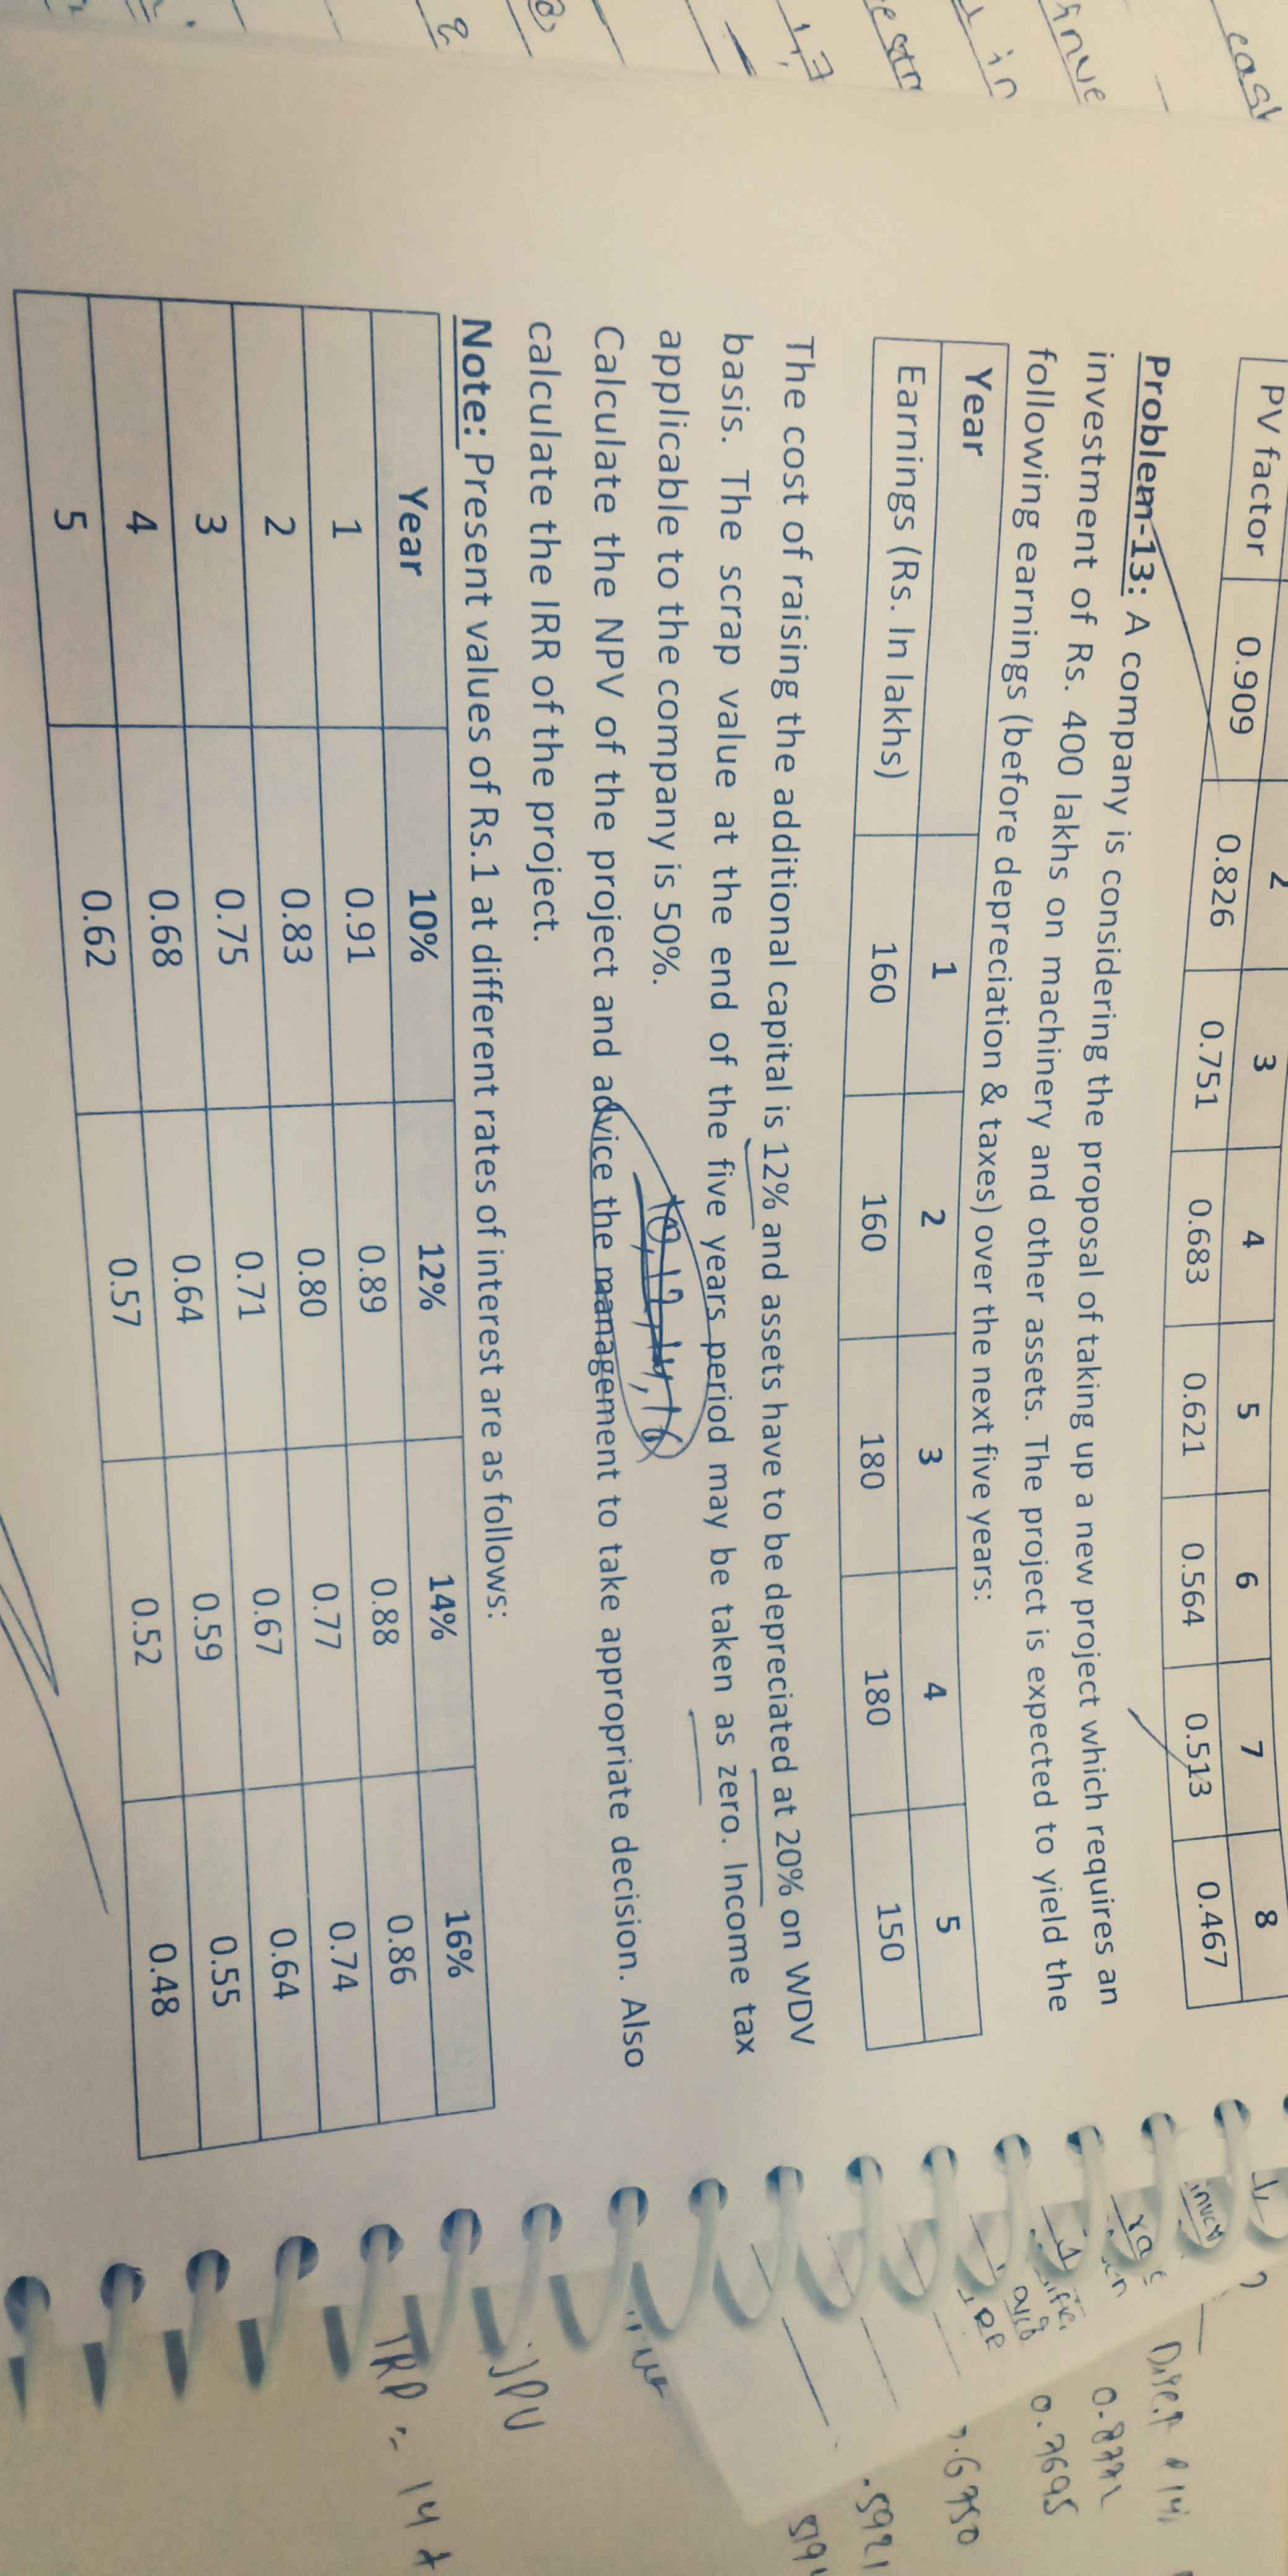 2 3 4 5 6 7 8
PV factor 0.909 0.826 0.751 0.683 0.621 0.564 0.513 0.467
Problem-13: A company is considering the proposal of taking up a new project which requires an
investment of Rs. 400 lakhs on machinery and other assets. The project is expected to yield the
following earnings (before depreciation & taxes) over the next five years:
Year 1 2 3 4 5
Earnings (Rs. In lakhs) 160 160 180 180 150
The cost of raising the additional capital is 12% and assets have to be depreciated at 20% on WDV
basis. The scrap value at the end of the five years period may be taken as zero. Income tax
applicable to the company is 50%.
10, 12, 14, 16
Calculate the NPV of the project and advice the management to take appropriate decision. Also
calculate the IRR of the project.
Note: Present values of Rs.1 at different rates of interest are as follows:
Year 10% 12% 14% 16%
1 0.91 0.89 0.88 0.86
2 0.83 0.80 0.77 0.74
3 0.75 0.71 0.67 0.64
4 0.68 0.64 0.59 0.55
5 0.62 0.57 0.52 0.48
cash
in
0.7695
.5921